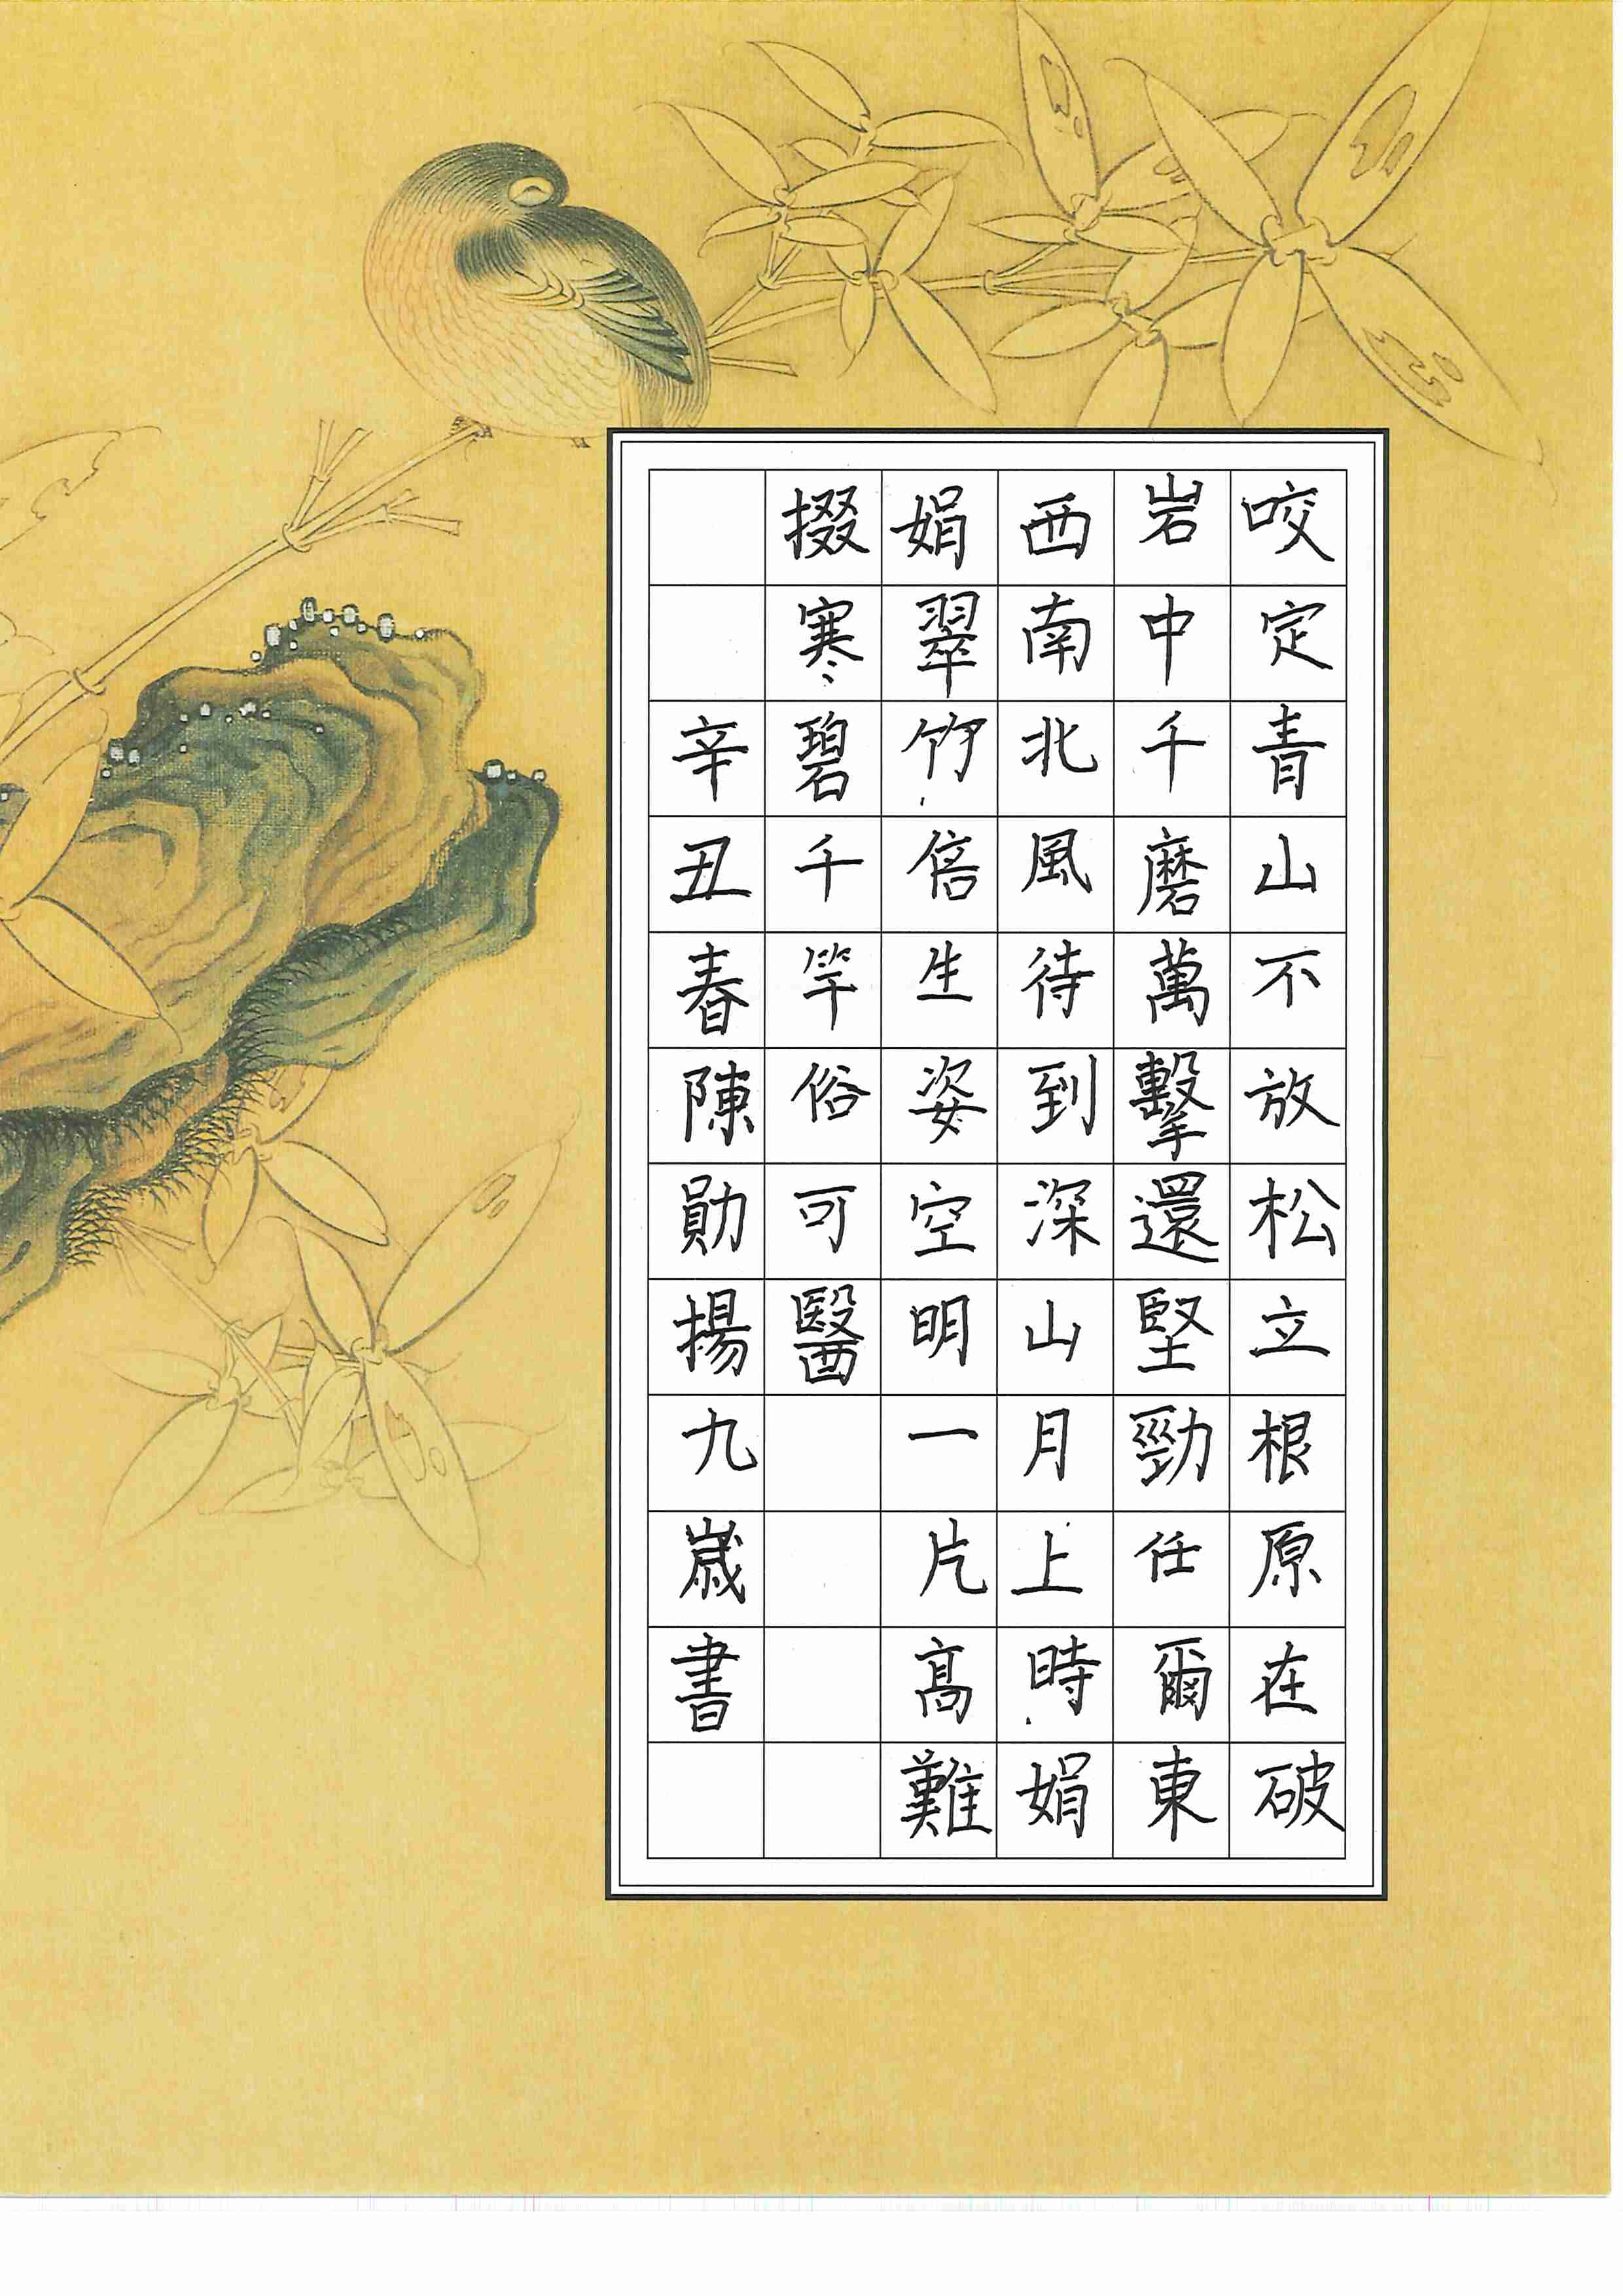 咬定青山不放松立根原在破
岩中千磨萬擊還堅勁任爾東
西南北風待到深山月上時娟
娟翠竹倍生姿空明一片高難
掇寒碧千竿俗可醫
辛丑春陳勛揚九歲書